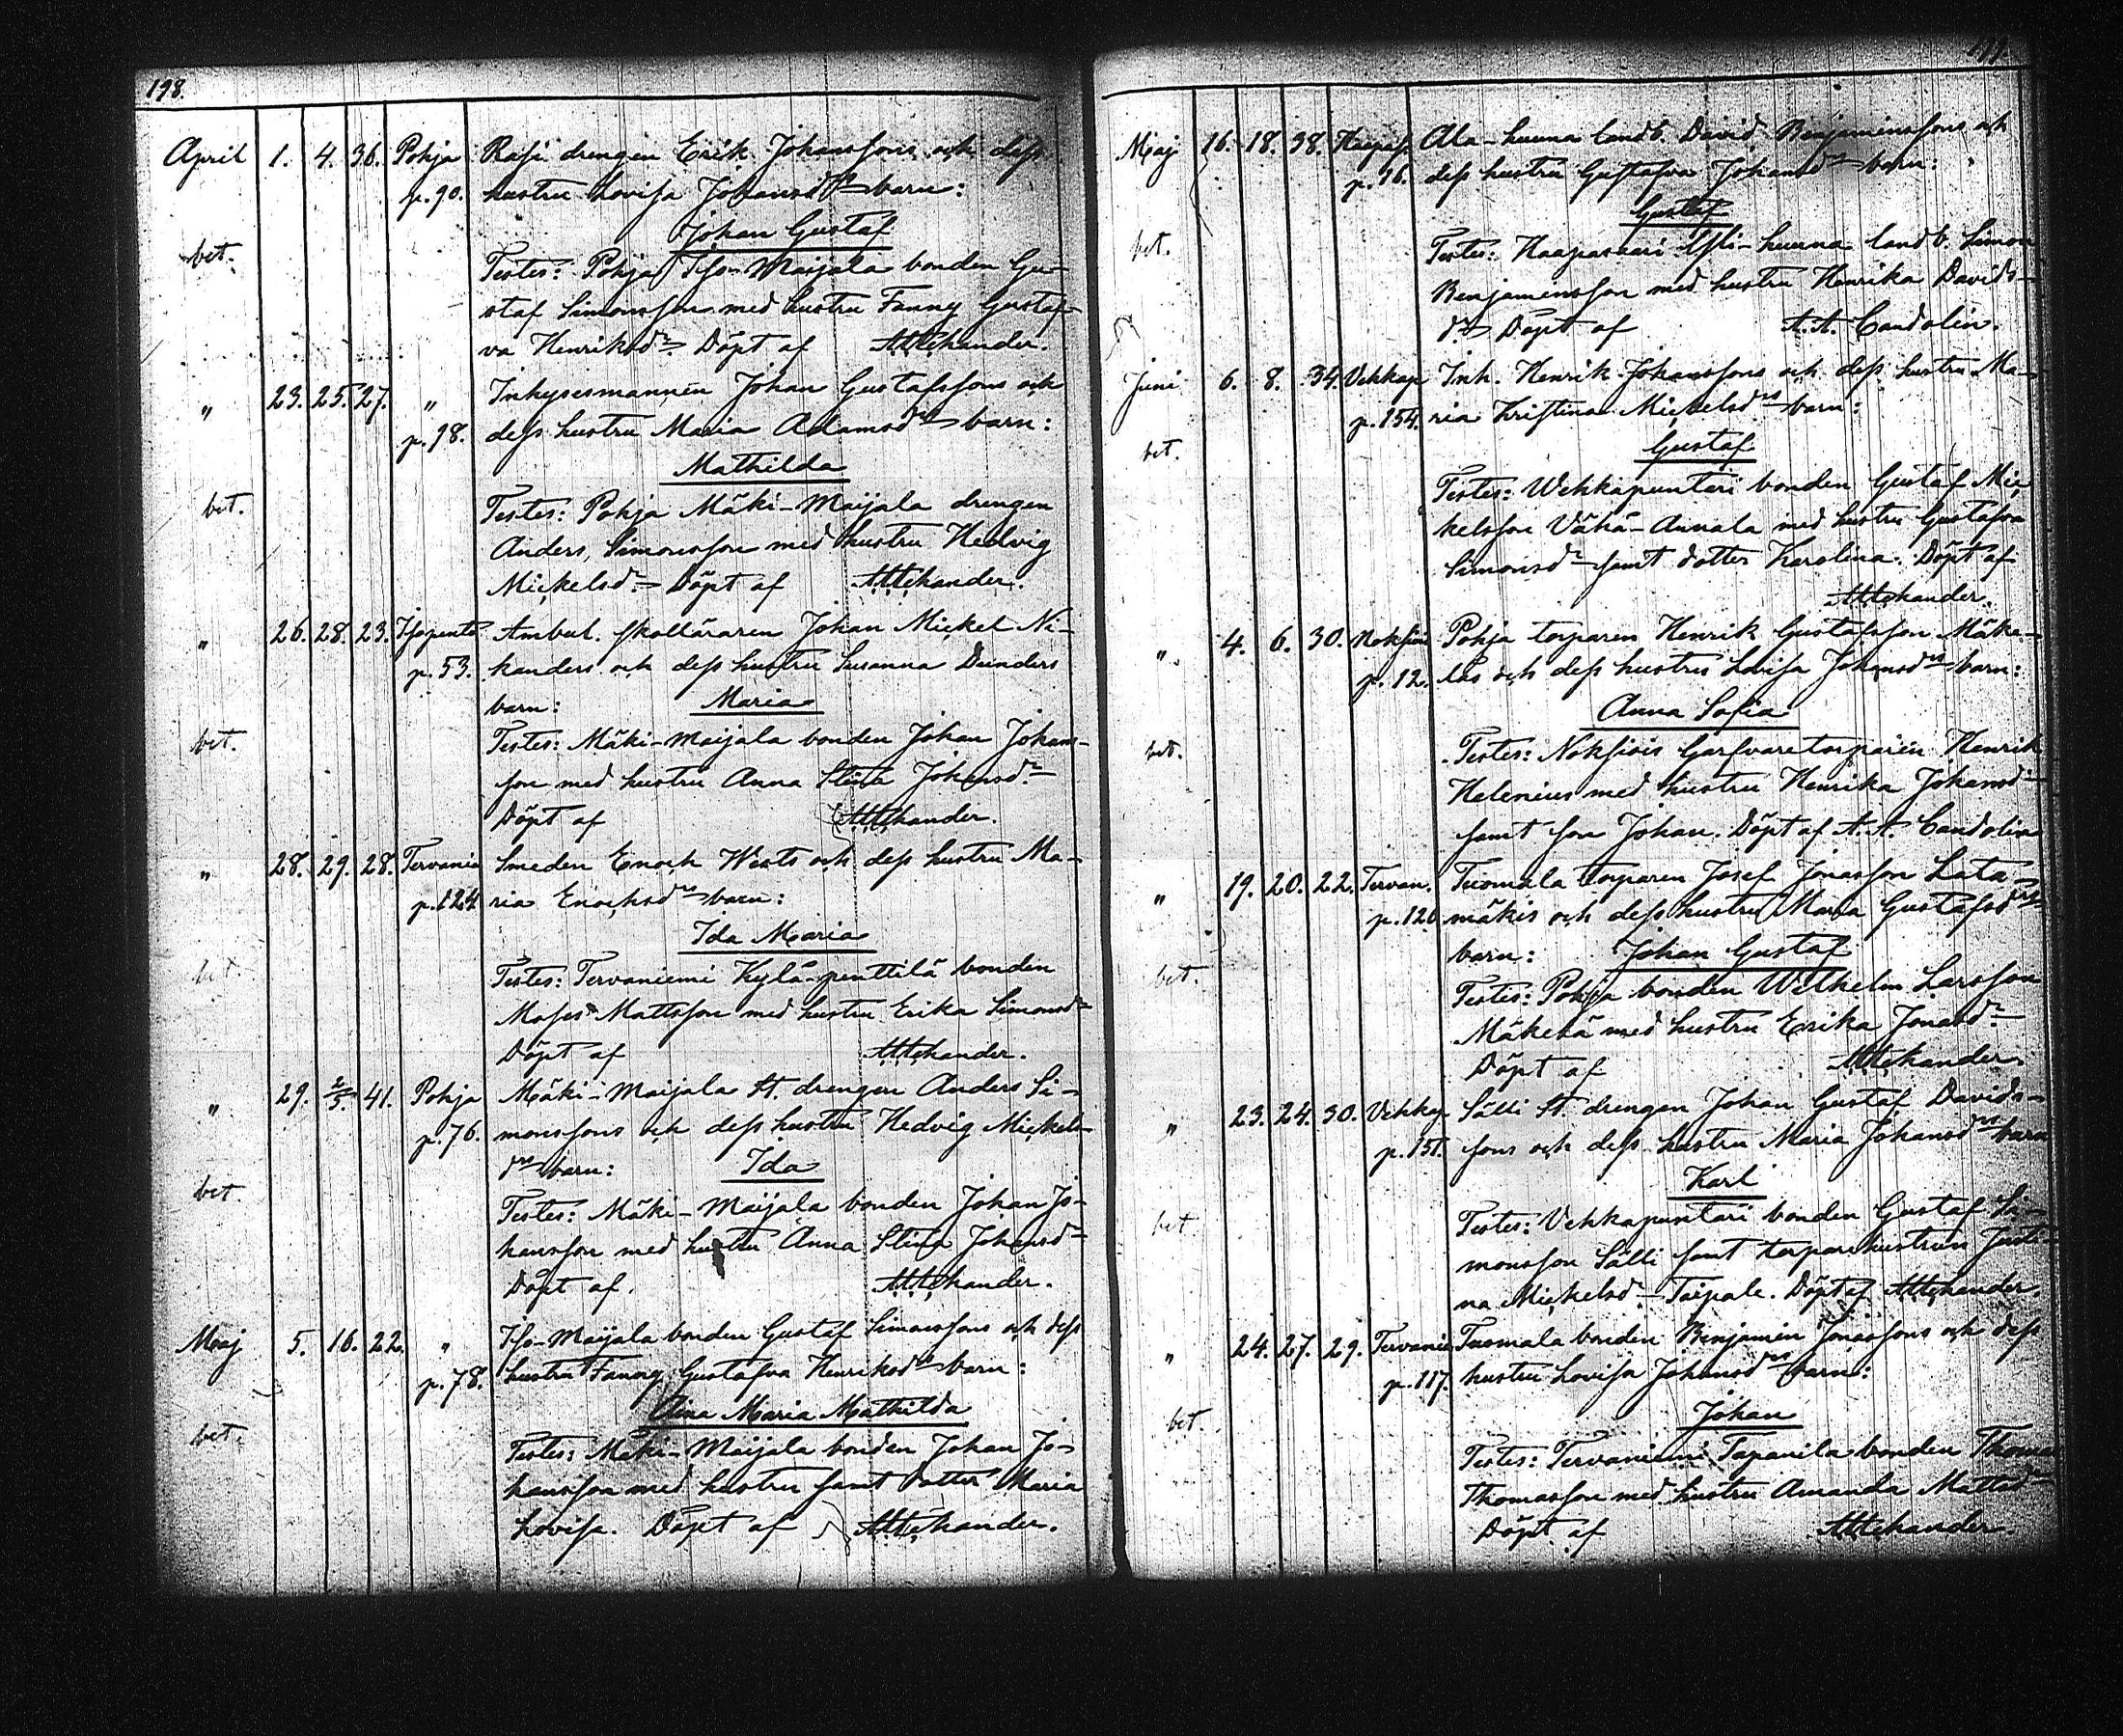 198.
April 1. 4. 36. Pohja Rasi drengen Erik Johanssons och dess
p. 90. hustru Lovisa Johansdrs barn:
Johan Gustaf
bet. Testes: Pohja Iso-Maijala bonden Gu-
staf Simonsson med hustru Fanny Gustaf-
va Henriksdr. Döpt af
" 23. 25. 27. " Inhysesmannen Johan Gustafssons och
p. 98. dess hustru Maria Adamsdrs barn:
Mathilda
bet. Testes: Pohja Mäki-Maijala drengen
Anders Simonsson med hustru Hedvig
Mickelsdr. Döpt af
" 26. 28. 23. Isopentä Ambul. skolläraren Johan Mickel Ni-
p. 53. kanders och dess hustru Susanna Dunders
barn: Maria
bet. Testes: Mäki-Maijala bonden Johan Johans-
son med hustru Anna Stina Johansdr
Döpt af
" 28. 29. 28. Tervanie Smeden Enoch Wests och dess hustru Ma-
p. 124. ria Enochsdrs barn:
Ida Maria
bet. Testes: Tervaniemi Kylä-penttilä bonden
Moses Mattsson med hustru Erika Simonsdr
Döpt af
" 29. 2/5. 41. Pohja Mäki-Maijala st. drengen Anders Si-
p. 76. monssons och dess hustru Hedvig Mickels-
drs barn: Ida
bet. Testes: Mäki-Maijala bonden Johan Jo-
hansson med hustru Anna Stina Johansdr
Döpt af.
Maj 5. 16. 22. " Iso-Maijala bonden Gustaf Simonssons och dess
p. 78. hustru Fanny Gustafva Henriksdrs barn:
Aina Maria Mathilda
bet. Testes: Mäki-Maijala bonden Johan Jo-
hansson med hustru samt dotter Maria
Lovisa. Döpt af
Maj 16. 18. 38. Haapas. Ala-huuna landb. David Benjaminssons och
p. 16. dess hustru Gustafva Johansdrs barn:
Gustaf
bet. Testes: Haapasaari Yli-huuna landb. Simon
Benjaminsson med hustru Henrika Davids-
dr. Döpt af A. A. Candolin.
Juni 6. 8. 34. Vehkap Inh. Henrik Johanssons och dess hustru Ma-
p. 154. ria Kristina Mickelsdrs barn:
bet. Gustaf
Testes: Wehkapuntari bonden Gustaf Mic
kelsson Vähä-Annala med hustru Gustafva
Simonsdr samt dotter Karolina. Döpt af
" 4. 6. 30. Noksjois Pohja torparen Henrik Gustafsson Mäke-
p. 12. läs och dess hustru Lovisa Johansdrs barn:
Anna Sofia
bet. Testes: Noksjois Garfvaretorparen Henrik
Helenius med hustru Henrika Johansdr
samt son Johan. Döpt af A. A. Candolin
" 19. 20. 22. Tervan. Tuomala torparen Josef Jonasson Lata-
p. 120 mäkis och dess hustru Maria Gustafsdrs
barn: Johan Gustaf
bet. Testes: Pohja bonden Wilhelm Larsson
Mäkelä med hustru Erika Jonasdr
Döpt af
" 23. 24. 30. Vehkap Sälli st. drengen Johan Gustaf Davids-
p. 151. sons och dess hustru Maria Johansdrs barn
Karl
bet Testes: Vehkapuntari bonden Gustaf Si-
monsson Sälli samt torparehustrun Justi-
na Mickelsdr Taipale. Döpt af
" 24. 27. 29. Tervanie Tuomala bonden Benjamin Jonassons och dess
p. 117. hustru Lovisa Johansdrs barn:
Johan
bet Testes: Tervaniemi Tapanila bonden Thomas
Thomasson med hustru Amanda Mattsdr
Döpt af